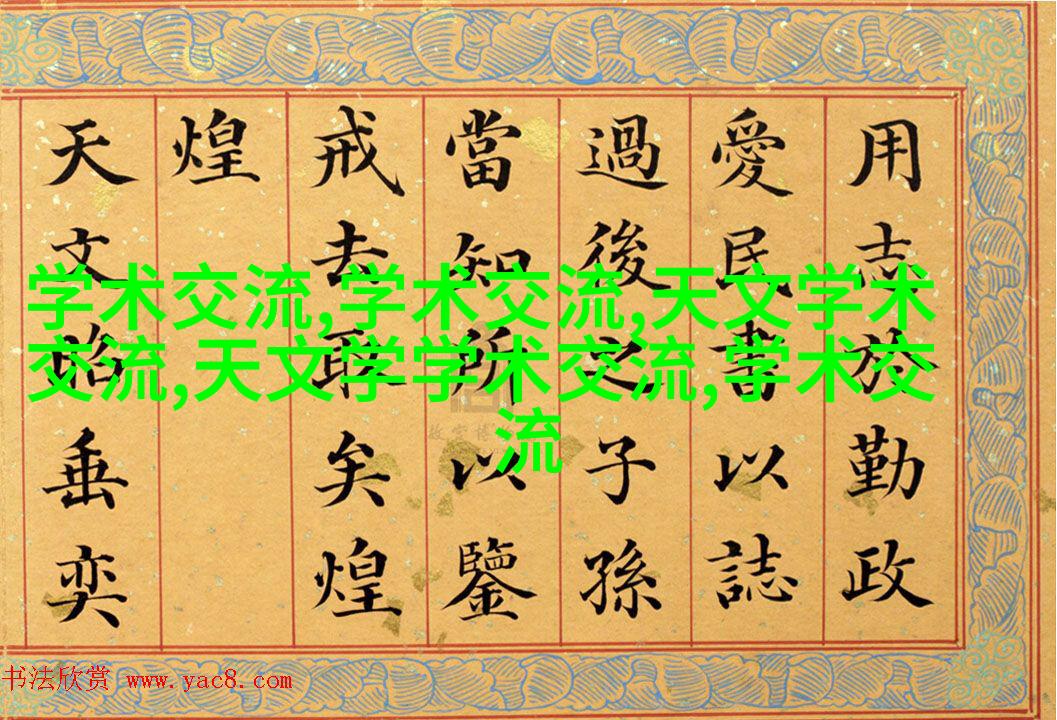 用志於勤政
愛民書以誌
過後之子孫
當知所以鑒
戒去取矣煌
煌
天文垂奕
学术交流,学术交流,天文学术
交流,天文学学术交流,学术交
流
书法欣赏 www.yac8.com